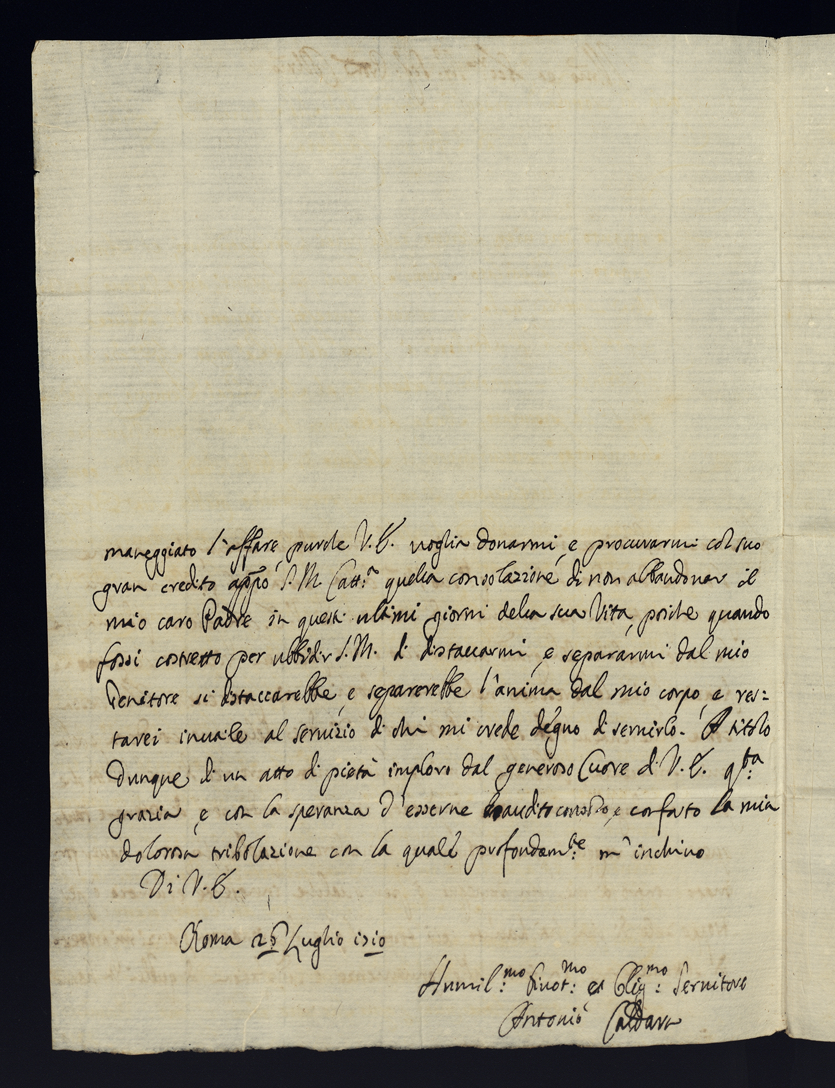 maneggiato l'affare, purche V. E. voglia donarmi, e procurarmi col suo
gran credito appò S. M. Catt:ca quella consolazione di non abbandonar il
mio caro Padre in questi ultimi giorni della sua Vita, poiche quando
fossi costretto per ubbidir S. M. di distaccarmi, e separarmi dal mio
Genitore si distaccarebbe, e separerebbe l'anima dal mio corpo, e res=
tarei inutile al servizio di chi mi crede degno di servirlo. A titolo
dunque di un atto di pietà imploro dal generoso Cuore di V. E. q:ta
grazia, e con la speranza d'esserne esaudito consolo, e conforto la mia
dolorosa tribolazione con la quale profondam:te m'inchino
Di V. E.
Roma Luglio 1710
Humil:mo Divot:mo et Oblig:mo Servitore
Antonio Caldara